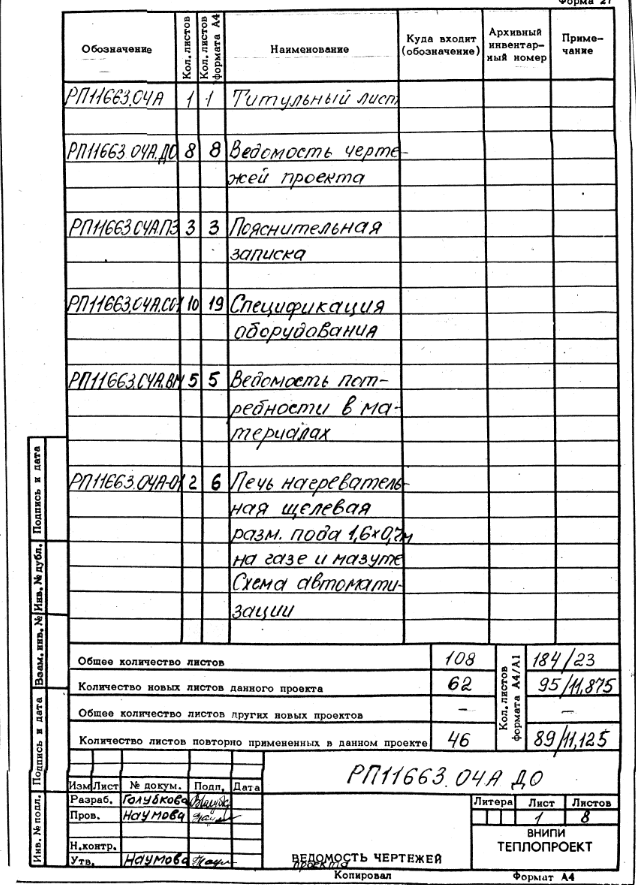 Форма 27
Обозначение Кол. листов Кол. листов формата А4 Наименование Куда входит (обозначение) Архивный инвентар- ный номер Приме- чание
РП11663.04А 1 1 Титульный лист
РП11663 04А.ДО 8 8 Ведомость черте-
жей проекта
РП11663 04А.ПЗ 3 3 Пояснительная
записка
РП11663.04А.СО1 10 19 Спецификация
оборудования
РП11663.04А.ВМ 5 5 Ведомость пот-
ребности в ма-
териалах
РП11663.04А-01 2 6 Печь нагреватель-
ная щелевая
разм. пода 1,6×0,7м
на газе и мазуте
Схема автомати-
зации
Общее количество листов 108 Кол. листов формата А4/А1 184/23
Количество новых листов данного проекта 62 95/11,875
Общее количество листов других новых проектов – –
Количество листов повторно примененных в данном проекте 46 89/11,125
РП11663.04А ДО
Изм Лист № докум. Подп. Дата
Разраб. Голубкова
Литера Лист Листов
Пров. Наумова
1 8
Н.контр.
ВНИПИ
ТЕПЛОПРОЕКТ
Утв. Наумова
ВЕДОМОСТЬ ЧЕРТЕЖЕЙ
проекта
Копировал Формат А4
Подпись и дата
Инв. № дубл.
Взам. инв. №
Подпись и дата
Инв. № подл.